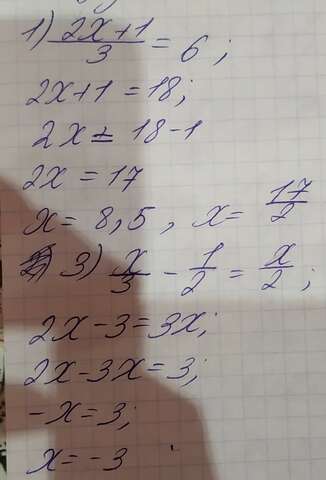 1) 2x+1/3 = 6;
2x+1 = 18;
2x = 18-1
2x = 17
x = 8,5, x = 17/2
3) x/3 - 1/2 = x/2;
2x-3=3x;
2x-3x=3;
-x=3;
x=-3